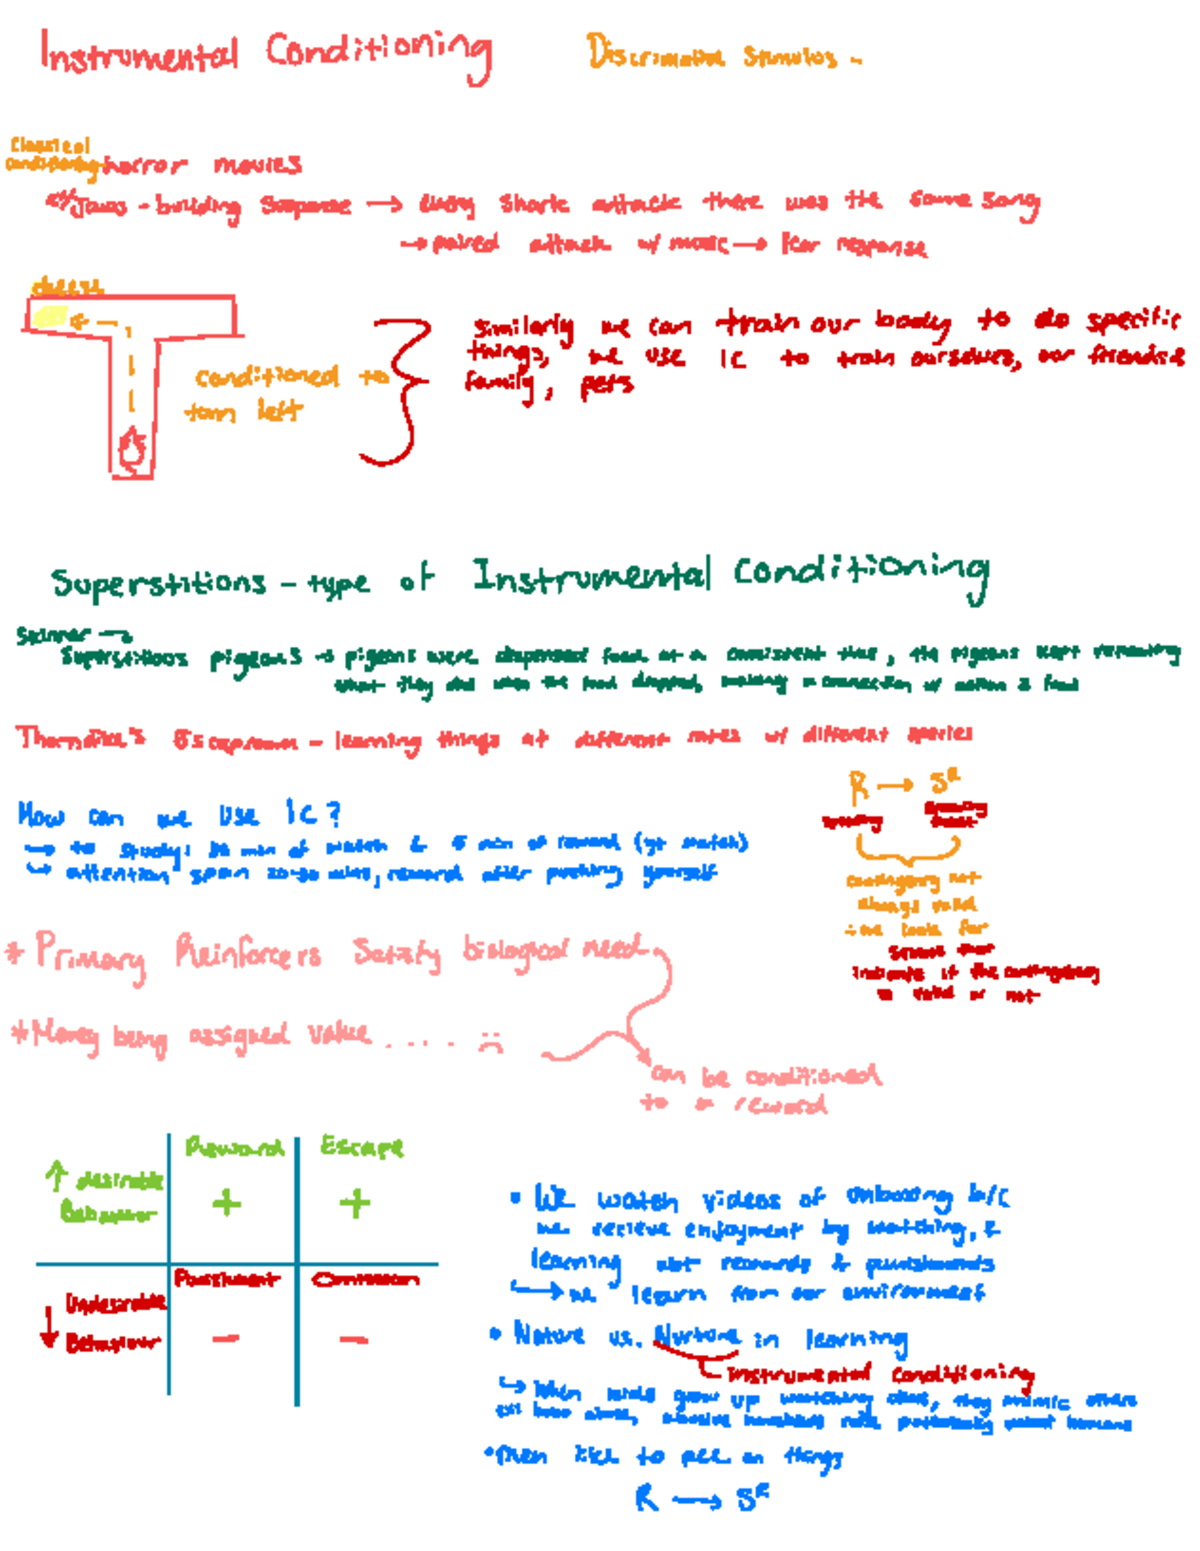 Instrumental Conditioning
Discriminative Stimulus -
Classical
conditioning
horror movies
ex/ Jaws - building suspense → every shark attack there was the same song
→ paired attack w/ music → fear response
cheese
conditioned to
turn left
Similarly we can train our body to do specific
things, we use IC to train ourselves, our friends &
family, pets
Superstitions - type of Instrumental Conditioning
Skinner →
Superstitious pigeons → pigeons were dispensed food at a consistent time, the pigeons kept repeating
what they did when the food dropped, making a connection w/ action & food
Thorndike's - learning things at different rates w/ different species
R → Sᴿ
speeding
speeding
ticket
contingency not
always valid
∴ we look for
that
indicate if the contingency
is valid or not
How can we use IC?
→ to study: min of & 5 min of reward (yt watch)
↳ attention span 20-30 mins, reward after pushing yourself
* Primary Reinforcers Satisfy biological need
* Money being assigned value ..... :(
can be conditioned
to a reward
Reward Escape
↑ desirable
Behaviour
+ +
Punishment Omission
↓ Undesirable
Behaviour
- -
• We watch videos of unboxing b/c
we recieve enjoyment by watching, &
learning abt rewards & punishments
↳ we learn from our environment
• Nature vs. Nurture in learning
Instrumental conditioning
↳ When kids grow up watching they mimic others
• Men like to pee on things
R → Sᴿ